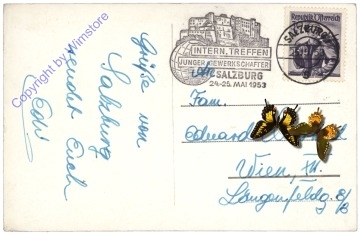 Copyright by Wimstore
Grüße von
Salzburg
sendet Euch
Edi
INTERN. TREFFEN
JUNGER GEWERKSCHAFTER
SALZBURG
24-25. MAI 1953
SALZBURG
An
Fam.
Eduard
Wien, XII.
Längenfeldg.